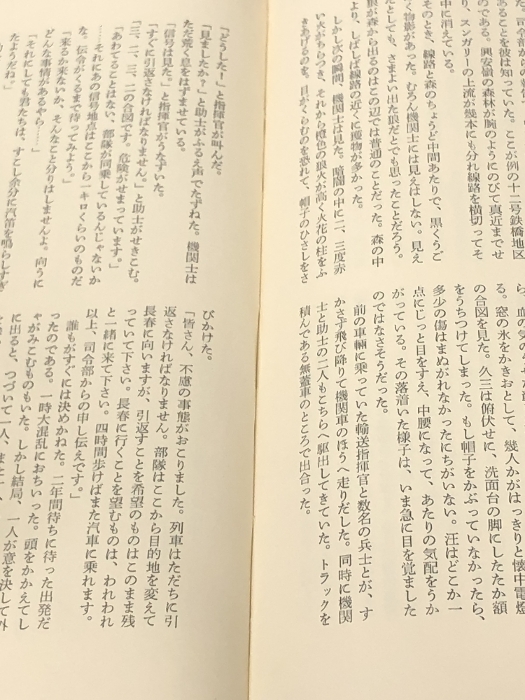 あることを彼は知っていた。ここが例の十二号鉄橋地区
のである。興安嶺の森林が腕のようにのびて真近までせ
り、スンガリーの上流が幾本にも分れ線路を横切ってそ
中に消えている。
そのとき、線路と森のちょうど中間あたりで、黒くうご
く物影があった。むろん機関士には見えはしない。見え
たとしても、さまよい出た狼だとでも思ったことだろう。
狼が森から出るのはこの辺では普通のことだった。森の中
より、しばしば線路の近くに獲物が多かった。
しかし次の瞬間、機関士は見た。暗闇の中に二、三度赤
い火がちらつき、それから橙色の狼火が高く火花の柱をふ
きあげるのを。目がくらむのを恐れて、帽子のひさしをさ
る。窓の氷をかきおとして、幾人かがはっきりと懐中電燈
の合図を見た。久三は俯伏せに、洗面台の脚にしたたか額
をうちつけてしまった。もし帽子をかぶっていなかったら、
多少の傷はまぬがれなかったにちがいない。汪はどこか一
点にじっと目をすえ、中腰になって、あたりの気配をうか
がっている。その落着いた様子は、いま急に目を覚ました
のではなさそうだった。
前の車輛に乗っていた輸送指揮官と数名の兵士とが、す
かさず飛び降りて機関車のほうへ走りだした。同時に機関
士と助士の二人もこちらへ駆出してきていた。トラックを
積んである無蓋車のところで出合った。
「どうした！」と指揮官が叫んだ。
「見ましたか？」と助士がふるえ声でたずねた。機関士は
ただ荒く息をはずませている。
「信号は見た。」と指揮官がうなずいた。
「すぐに引返さなければなりません。」と助士がせきこむ。
「三、二、三、二の合図です。危険がせまっています。」
「あわてることはない、部隊が同乗しているんじゃないか
……それにあの信号地点はここから一キロくらいのものだ
な。伝令がくるまで待ってみよう。」
「来るか来ないか、そんなこと分りはしませんよ。向うに
どんな事情があるやら……」
「それにしても君たちは、すこし余分に汽笛を鳴らしすぎ
たようだね。」
びかけた。
「皆さん、不慮の事態がおこりました。列車はただちに引
返さなければなりません。部隊はここから目的地を変えて
長春に向いますが、引返すことを希望のものはこのまま残
っていて下さい。長春に行くことを望むものは、われわれ
と一緒に来て下さい。四時間歩けばまた汽車に乗れます。
以上、司令部からの申し伝えです。」
誰もがすぐには決めかねた。二年間待ちに待った出発だ
ったのである。一時大混乱におちいった。頭をかかえてし
ゃがみこむものもいた。しかし結局、一人が意を決して外
に出ると、つづいて一人、また一人、